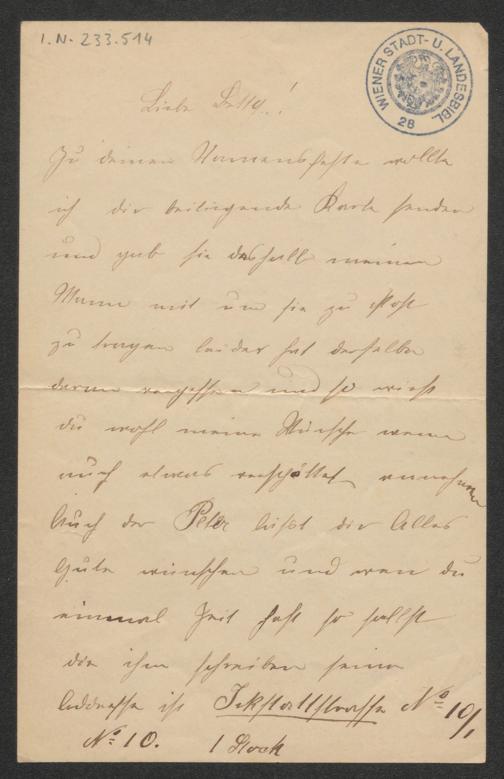 I.N. 233.514
WIENER STADT- U. LANDESBIBL.
28
Liebe Betty!
Zu deinem Namensfeste wollte
ich dir beiliegende Karte senden
und gab sie deshalb meinem
Mann mit um sie zu Post
zu tragen leider hat derselbe
daran vergessen und so wirst
du wohl meine Wünsche wenn
auch etwas verspättet annehmen
Auch der Peter läßt dir Alles
Gute wünschen und wen du
einmal Zeit hast so sollst
du ihm schreiben seine
Addresse ist Ickstattstrasse No 10/1
No 10. 1 Stock